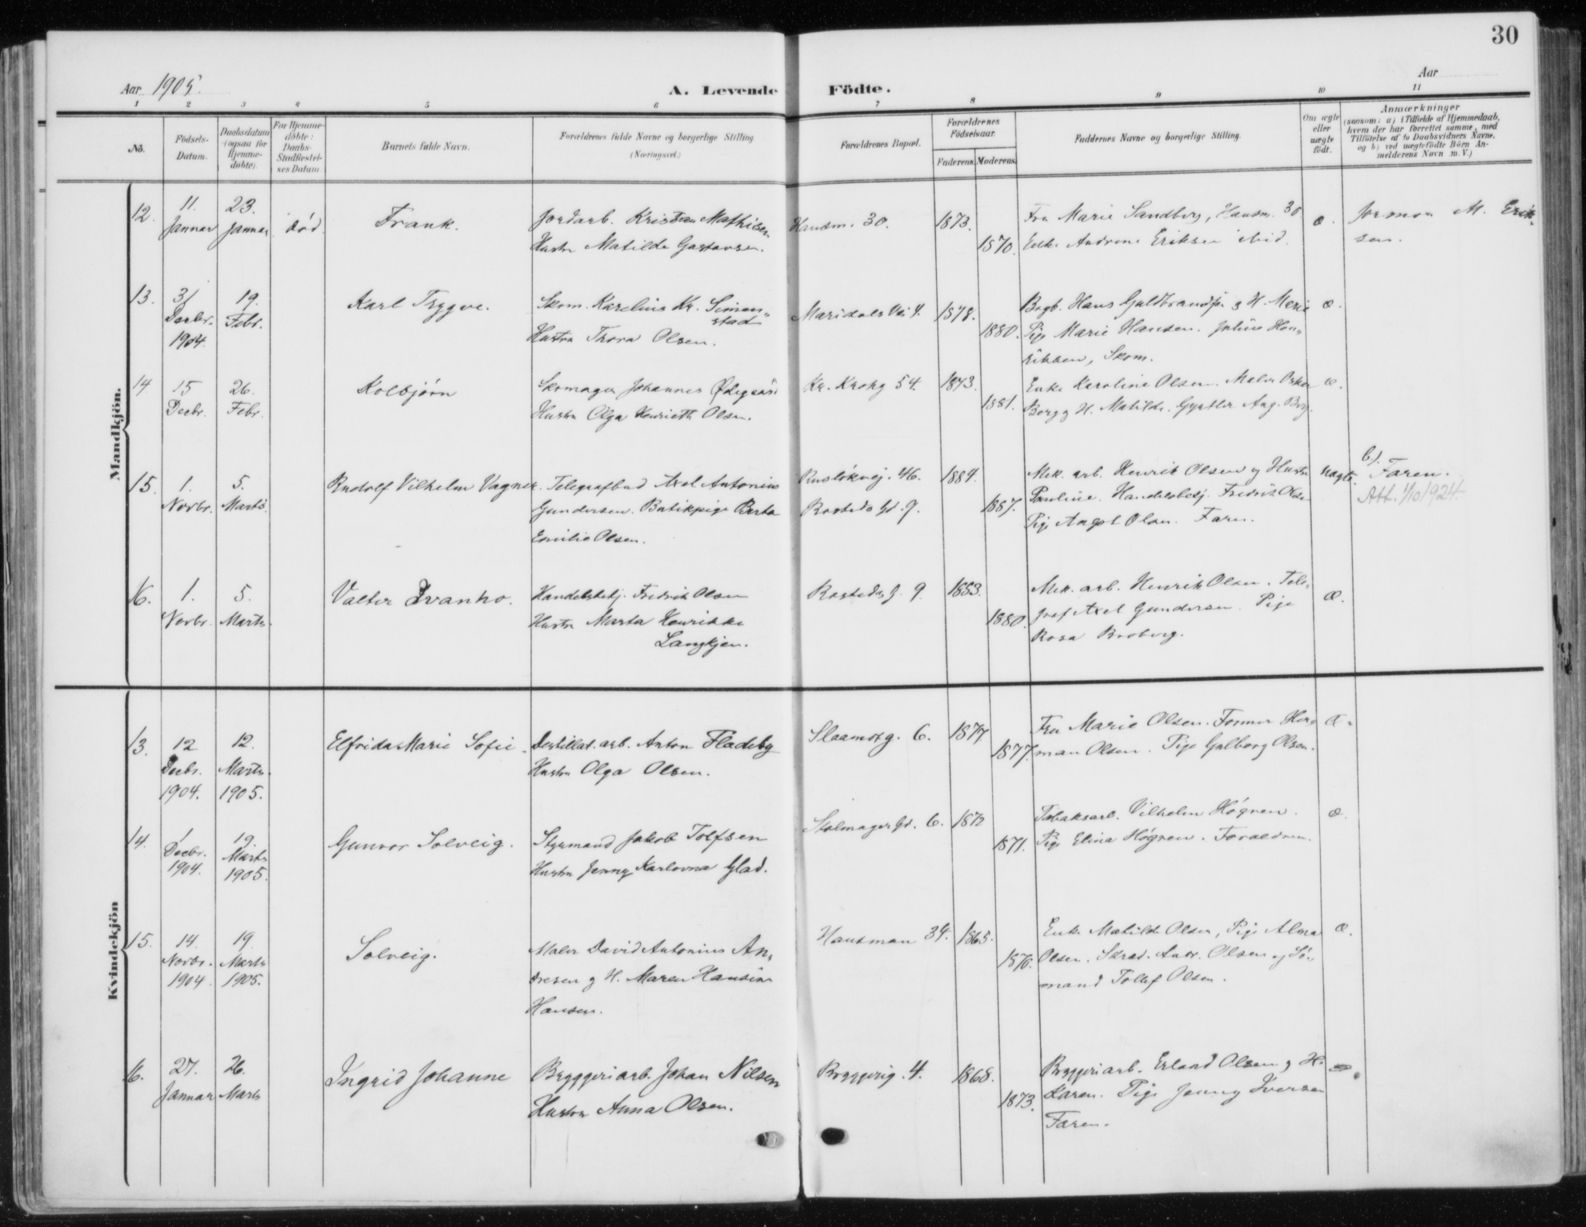 30
Aar 1905.
A. Levende Födte.
Aar
1 2 3 4 5 6 7 8 9 10 11
No.
Födsels-
Datum.
Daabsdatum
(ogsaa for
Hjemme-
döbte).
For Hjemme-
döbte:
Daabs-
Stadfæstel-
ses Datum
Barnets fulde Navn.
Forældrenes fulde Navne og borgerlige Stilling
(Næringsvei.)
Forældrenes Bopæl.
Forældrenes
Födselsaar.
Faderens. Moderens.
Faddernes Navne og borgerlige Stilling.
Om ægte
eller
uægte
födt.
Anmærkninger
(saasom: a) i Tilfælde af Hjemmedaab,
hvem der har forrettet samme, med
Tilföielse af to Daabsvidners Navne,
og b) ved uægtefödte Börn An-
melderens Navn m. V.)
Mandkjön.
12. 11. Januar 23. Januar død Frank.
Jordarb. Kristian Mathisen
Hustru Matilde Gustavsen.
Hausm. 30. 1873. 1870.
Fru Marie Sandberg, Hausm. 30
Enke Andrine Eriksen ibid.
æ.
Jormor M. Erik-
sen.
13. 31 Decbr. 1904. 19. Febr. Karl Trygve.
Skom. Karelius Kr. Simen-
stad
Hustru Thora Olsen.
Maridalsvei 4. 1878. 1880.
Bogb. Hans Guldbrandsen og H. Marie
Pige Marie Hansen. Julius Hen-
riksen, Skom.
æ.
14. 15 Decbr. 26. Febr. Kolbjørn
Skomager Johannes
Hustru Olga Henriette Olsen.
Kr. Krohg 54. 1873. 1881.
Enke Karoline Olsen. Maler Oskar
Berg og H. Matilde. Gjørtler Aug. Berg.
æ.
15. 1. Novbr. 5. Marts. Rudolf Vilhelm Vagner.
Telegrafbud Axel Antonius
Gundersen. Butikpige Berta
Emilie Olsen.
Ruseløkvej. 46.
Rosteds Gd. 9.
1884. 1887.
Mek. arb. Henrik Olsen og Hustru
Pauline. Handelsbetj. Fredrik Olsen
Pige Aagot Olsen. Faren.
uægte.
b). Faren.
Att. 1/10 1924
16. 1. Novbr. 5. Marts. Valter Ivanho.
Handelsbetj. Fredrik Olsen
Hustru Marta Henrikke
Langkjen.
Rosteds g. 9. 1883. 1880.
Mek. arb. Henrik Olsen. Tele-
graf Axel Gundersen. Pige
Rosa Broberg.
æ.
Kvindekjön
13. 12 Decbr. 1904. 12. Marts. 1905. Elfrida Marie Sofie.
Destillat. arb. Anton Fladeby
Hustru Olga Olsen.
Slaamotg. 6. 1877 1877.
Fru Marie Olsen. Former Her-
man Olsen. Pige Galborg Olsen.
æ.
14. 1 Decbr. 1904. 19. Marts 1905. Gunvor Solveig.
Styrmand Jakob Tolfsen
Hustru Jenny Karlovna Glad.
Skolmager Gd. 6. 1871.
Tobaksarb. Vilhelm Høgren.
Pige Elina Høgren. Forældrene.
æ.
15. 14. Novbr. 1904. 19. Marts 1905. Solveig.
Maler David Antonius An-
dresen og H. Maren Hansine
Hansen.
Hausman 34. 1865. 1870.
Enke Matilde Olsen, Pige Alma
Olsen. Skræd. Andr. Olsen og Sø-
mand Tollef Olsen.
æ.
16. 27. Januar 26. Marts Ingrid Johanne
Bryggeriarb. Johan Nilsen
Hustru Anna Olsen.
Bryggerig. 4. 1868. 1873.
Bryggeriarb. Erland Olsen og H.
Karen. Pige Jenny Iversen
Faren.
æ.